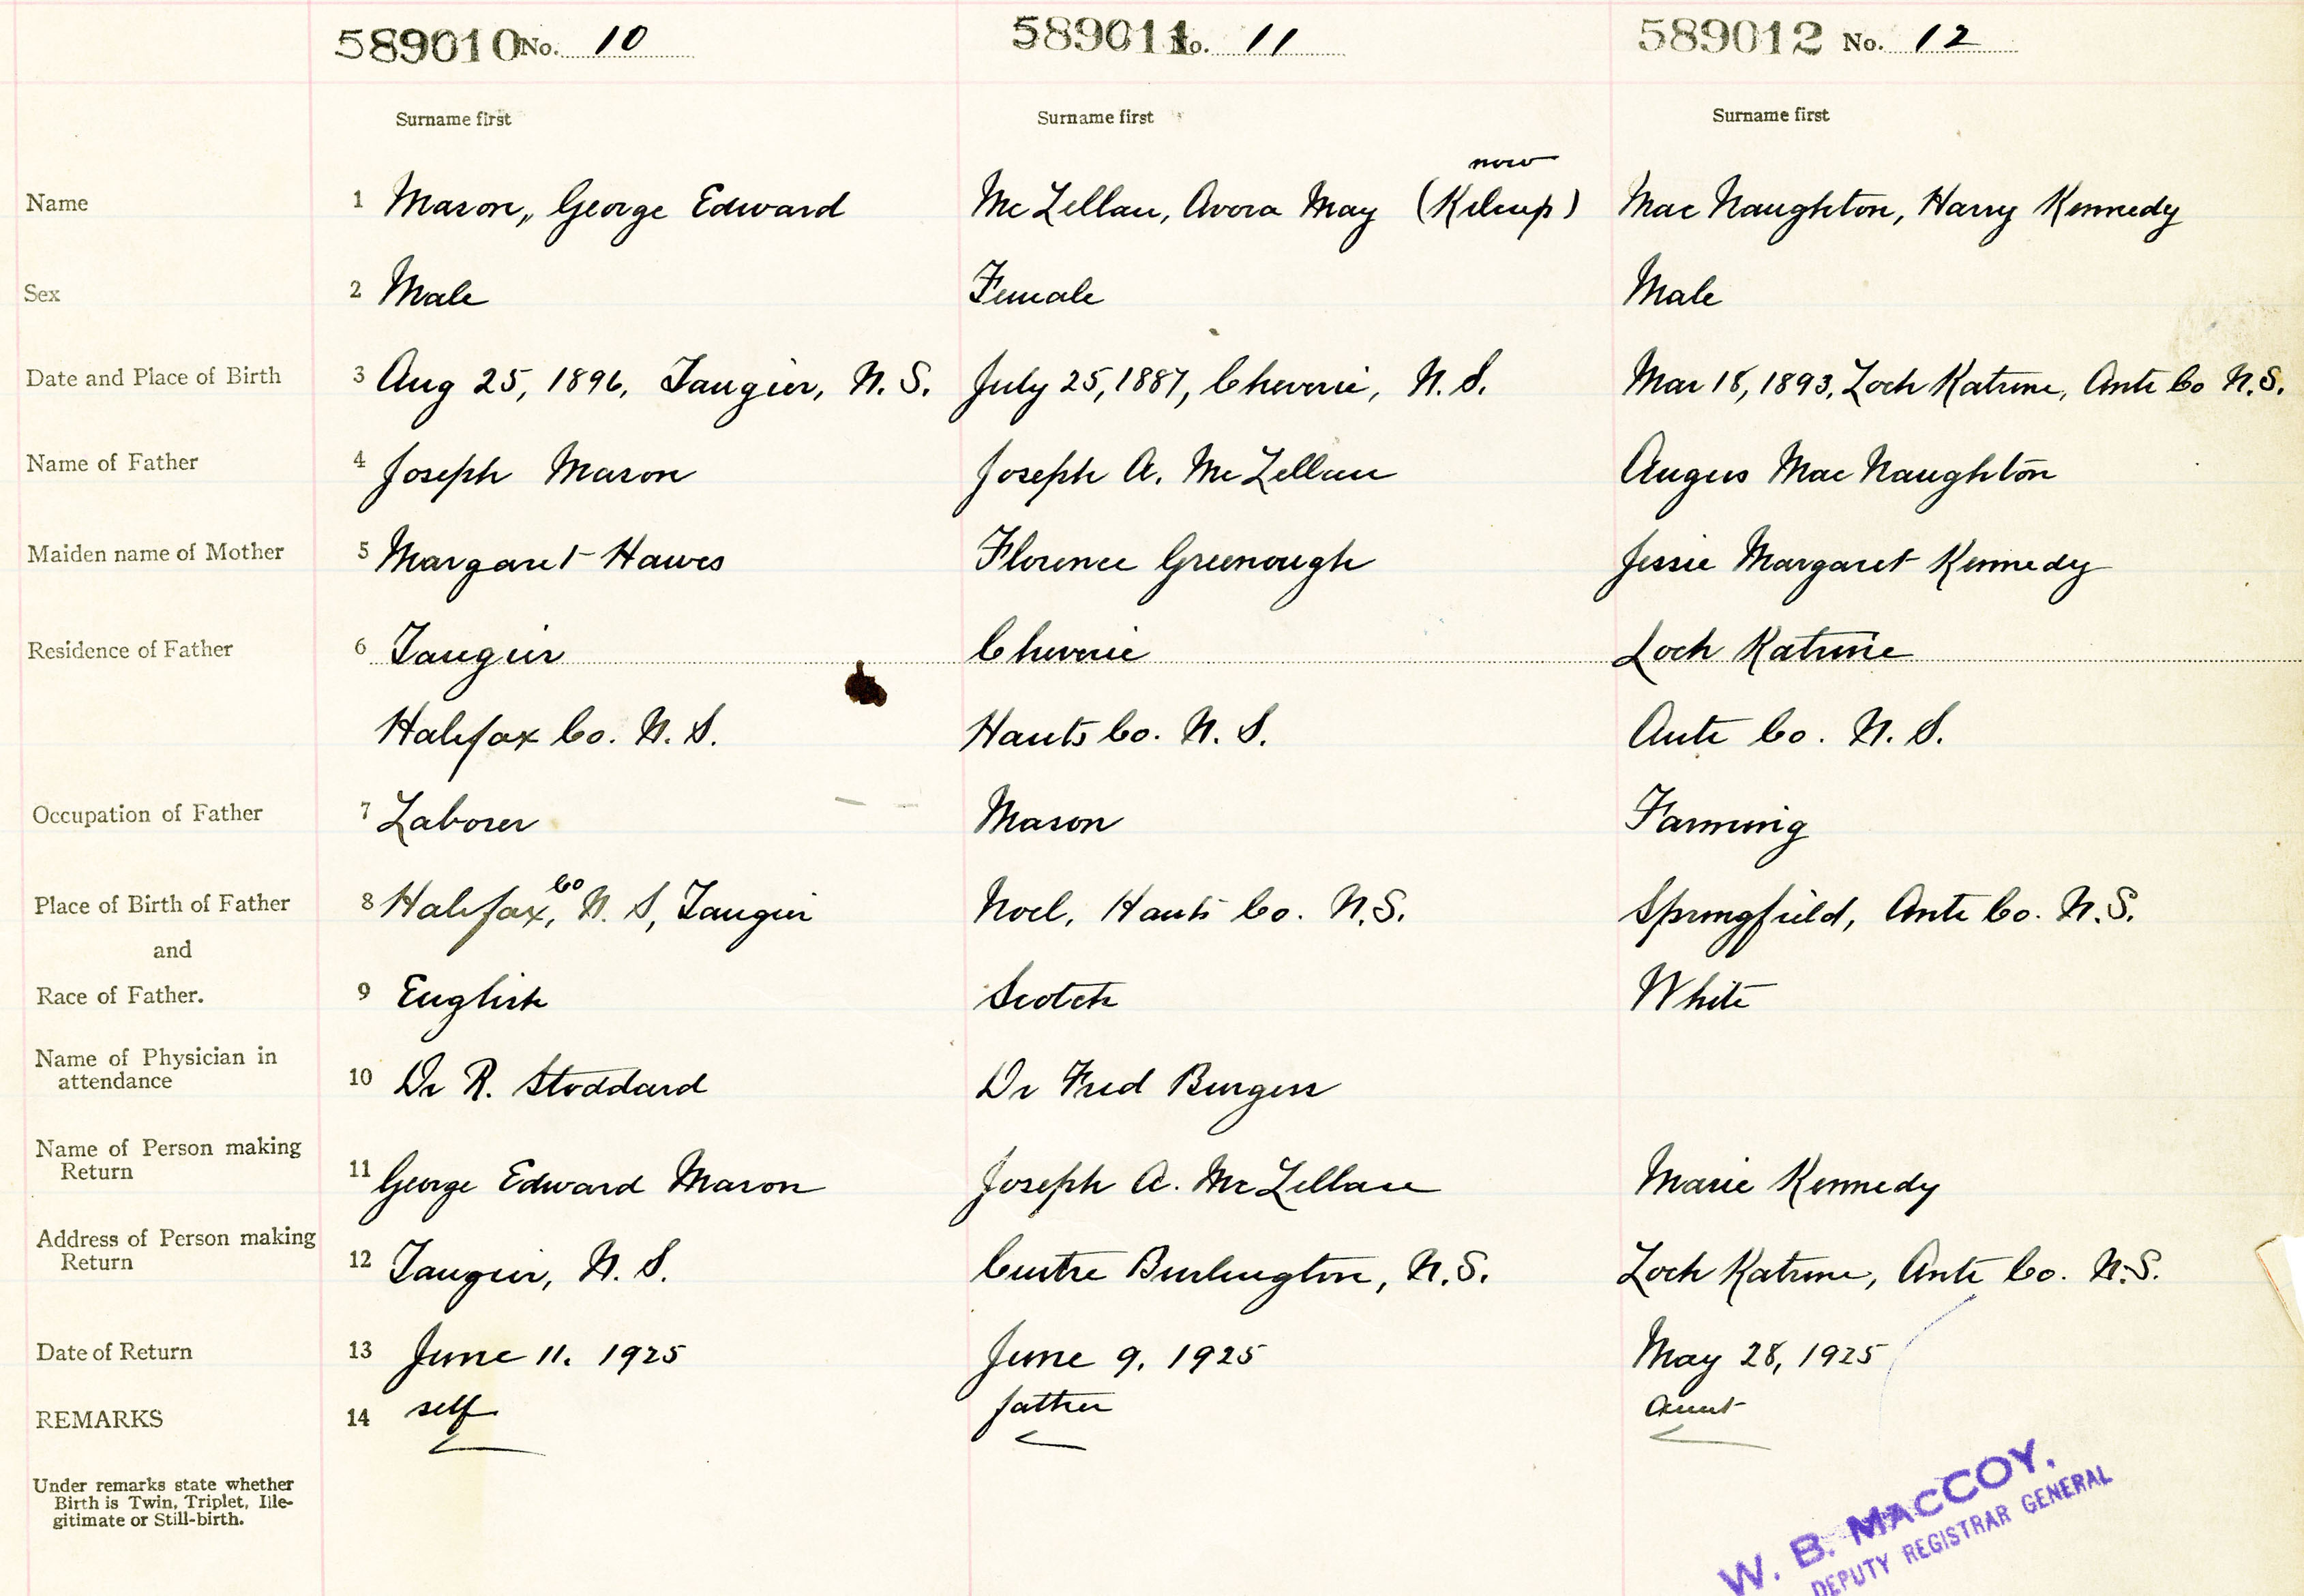 589010 No. 10 589011 No. 11 589012 No. 12
Surname first Surname first Surname first
now
Name 1 Mason, George Edward McLellan, Avora May (Kilcup) MacNaughton, Harry Kennedy
Sex 2 Male Female Male
Date and Place of Birth 3 Aug 25, 1896, Tangier, N. S. July 25, 1887, Cheverie, N. S. Mar 18, 1893, Loch Katrine, Ante Co N.S.
Name of Father 4 Joseph Mason Joseph A. McLellan Angus MacNaughton
Maiden name of Mother 5 Margaret Hawes Florence Greenough Jessie Margaret Kennedy
Residence of Father 6 Tangier Cheverie Loch Katrine
Halifax Co. N. S. Hants Co. N. S. Ante Co. N. S.
Occupation of Father 7 Laborer Mason Farming
Place of Birth of Father 8 Halifax, Co N. S, Tangier Noel, Hants Co. N.S. Springfield, Ante Co. N.S.
and
Race of Father. 9 English Scotch White
Name of Physician in
attendance 10 Dr R. Stoddard Dr Fred Burgess
Name of Person making
Return 11 George Edward Mason Joseph A. McLellan Marie Kennedy
Address of Person making
Return 12 Tangier, N. S. Centre Burlington, N.S. Loch Katrine, Ante Co. N.S.
Date of Return 13 June 11. 1925 June 9, 1925 May 28, 1925
REMARKS 14 self father aunt
Under remarks state whether
Birth is Twin, Triplet, Ille-
gitimate or Still-birth.
W. B. MACCOY.
DEPUTY REGISTRAR GENERAL